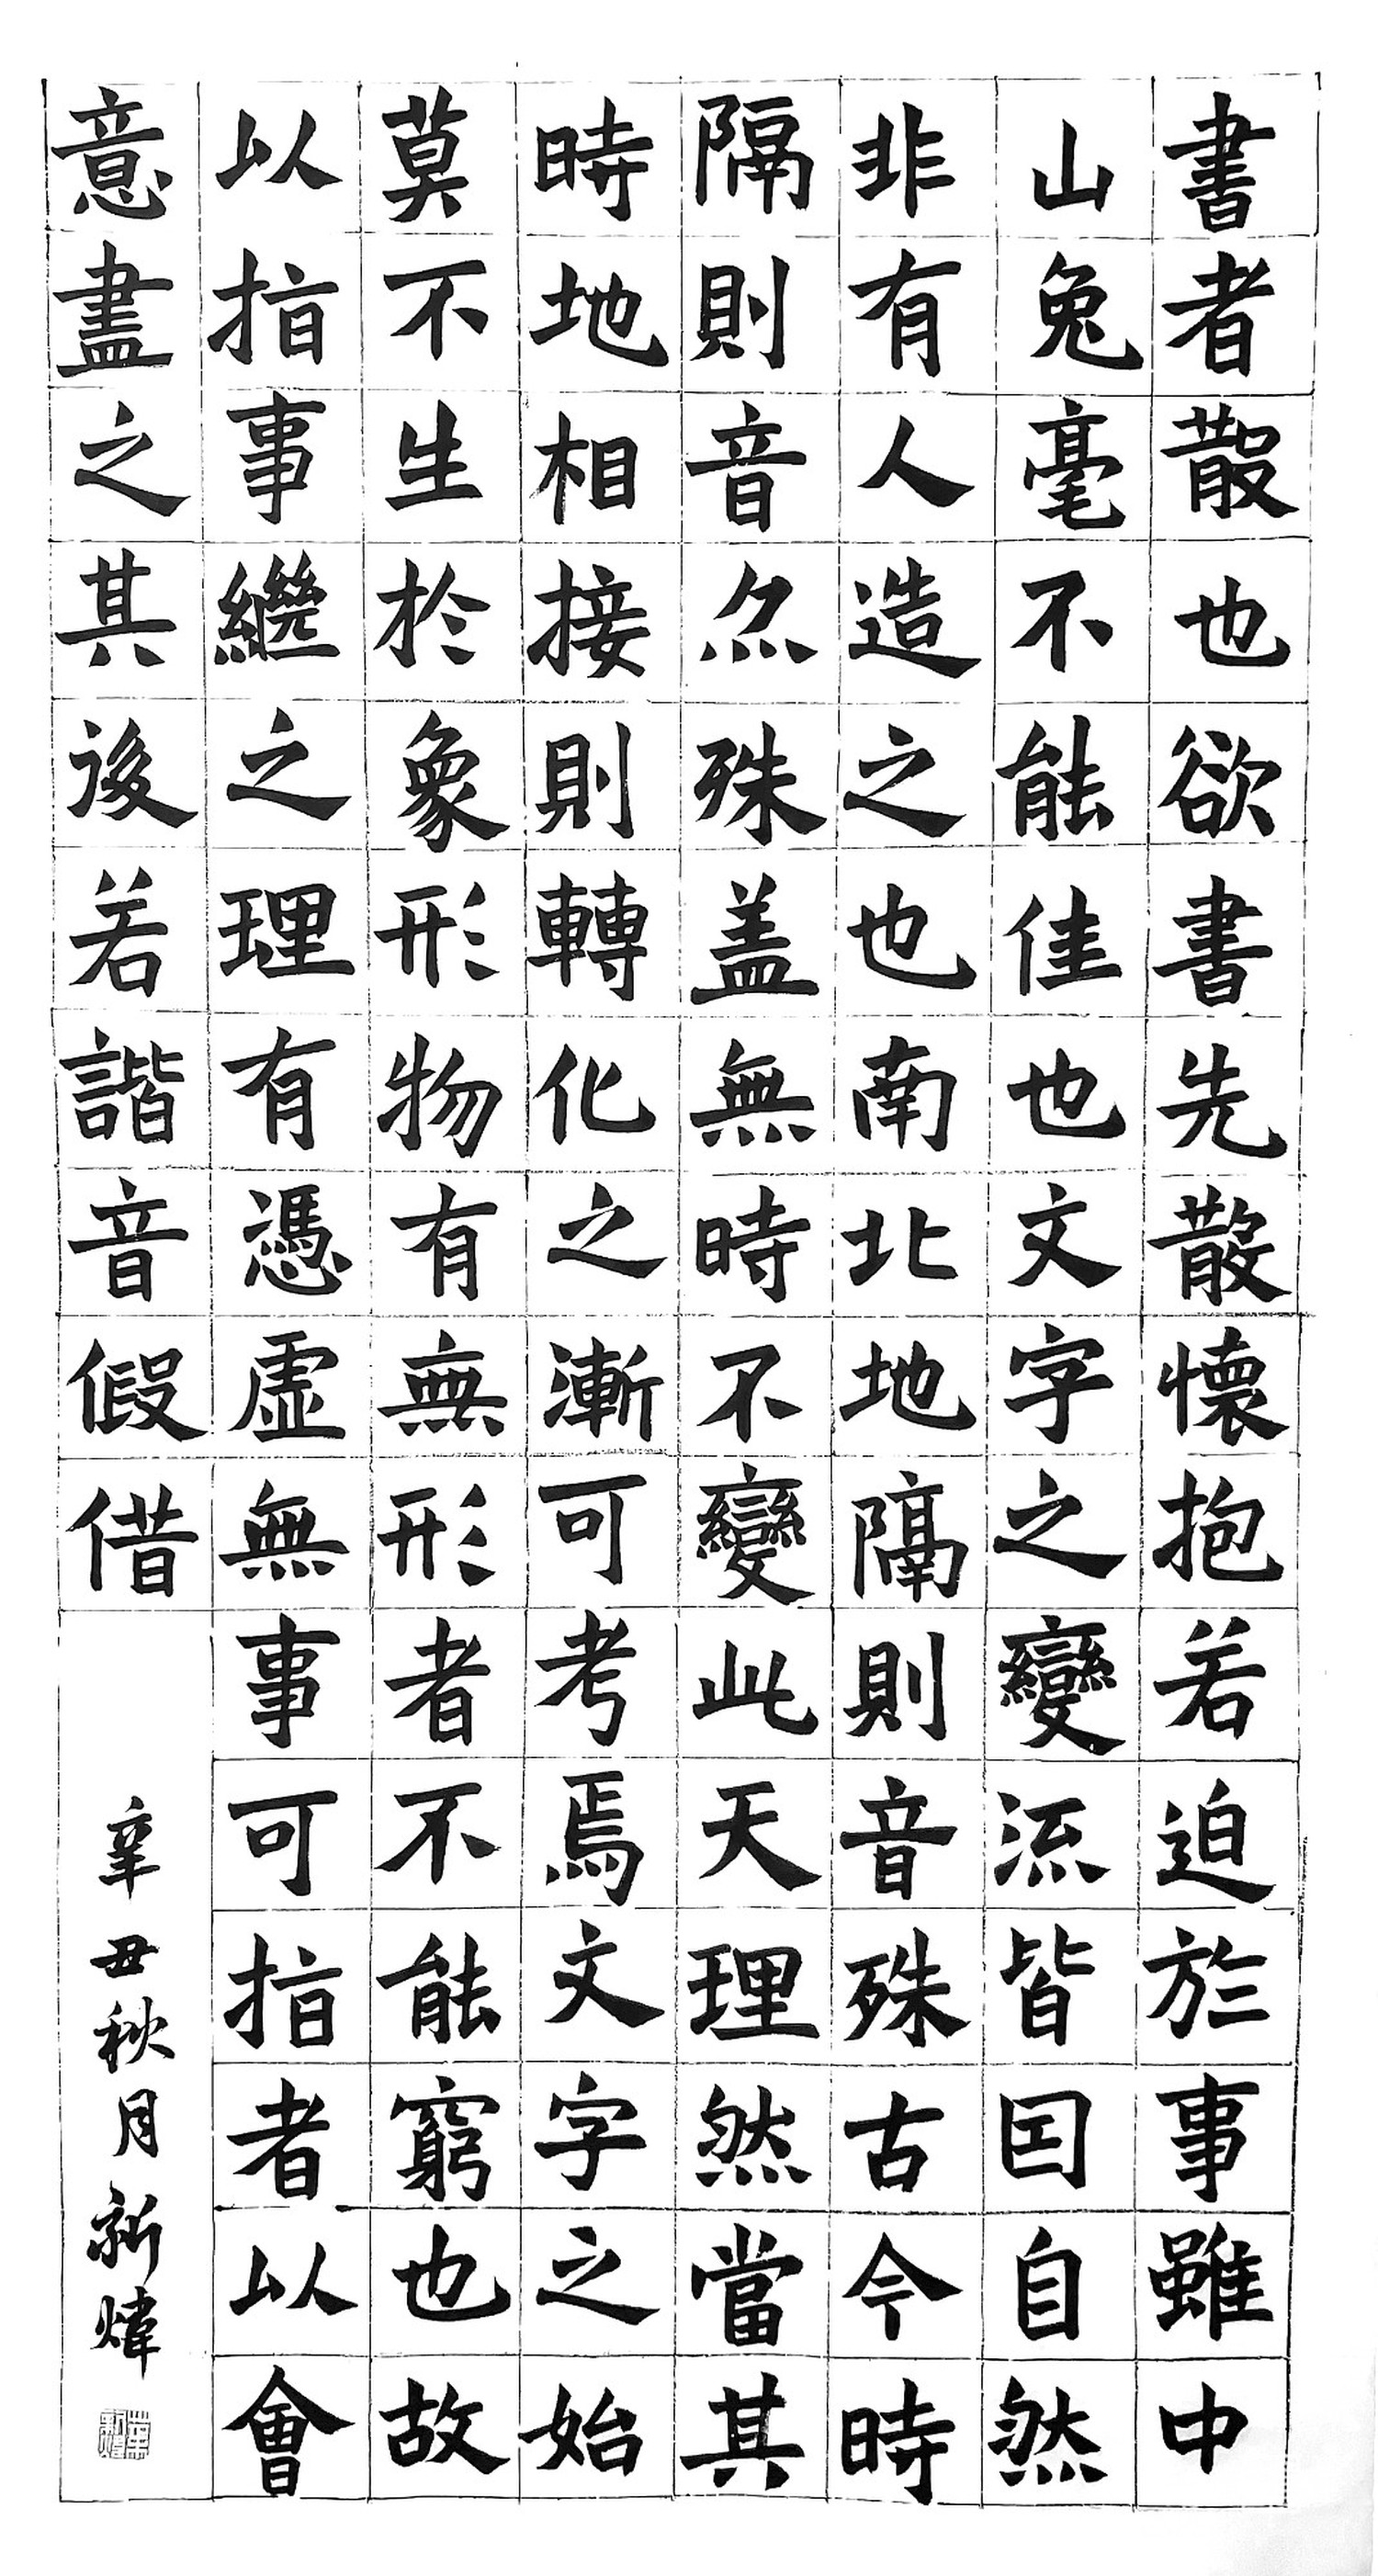 書者散也欲書先散懷抱若迫於事雖中
山兔毫不能佳也文字之變流皆因自然
非有人造之也南北地隔則音殊古今時
隔則音亦殊盖無時不變此天理然當其
時地相接則轉化之漸可考焉文字之始
莫不生於象形物有無形者不能窮也故
以指事繼之理有憑虛無事可指者以會
意盡之其後若諧音假借
辛丑秋月新煒